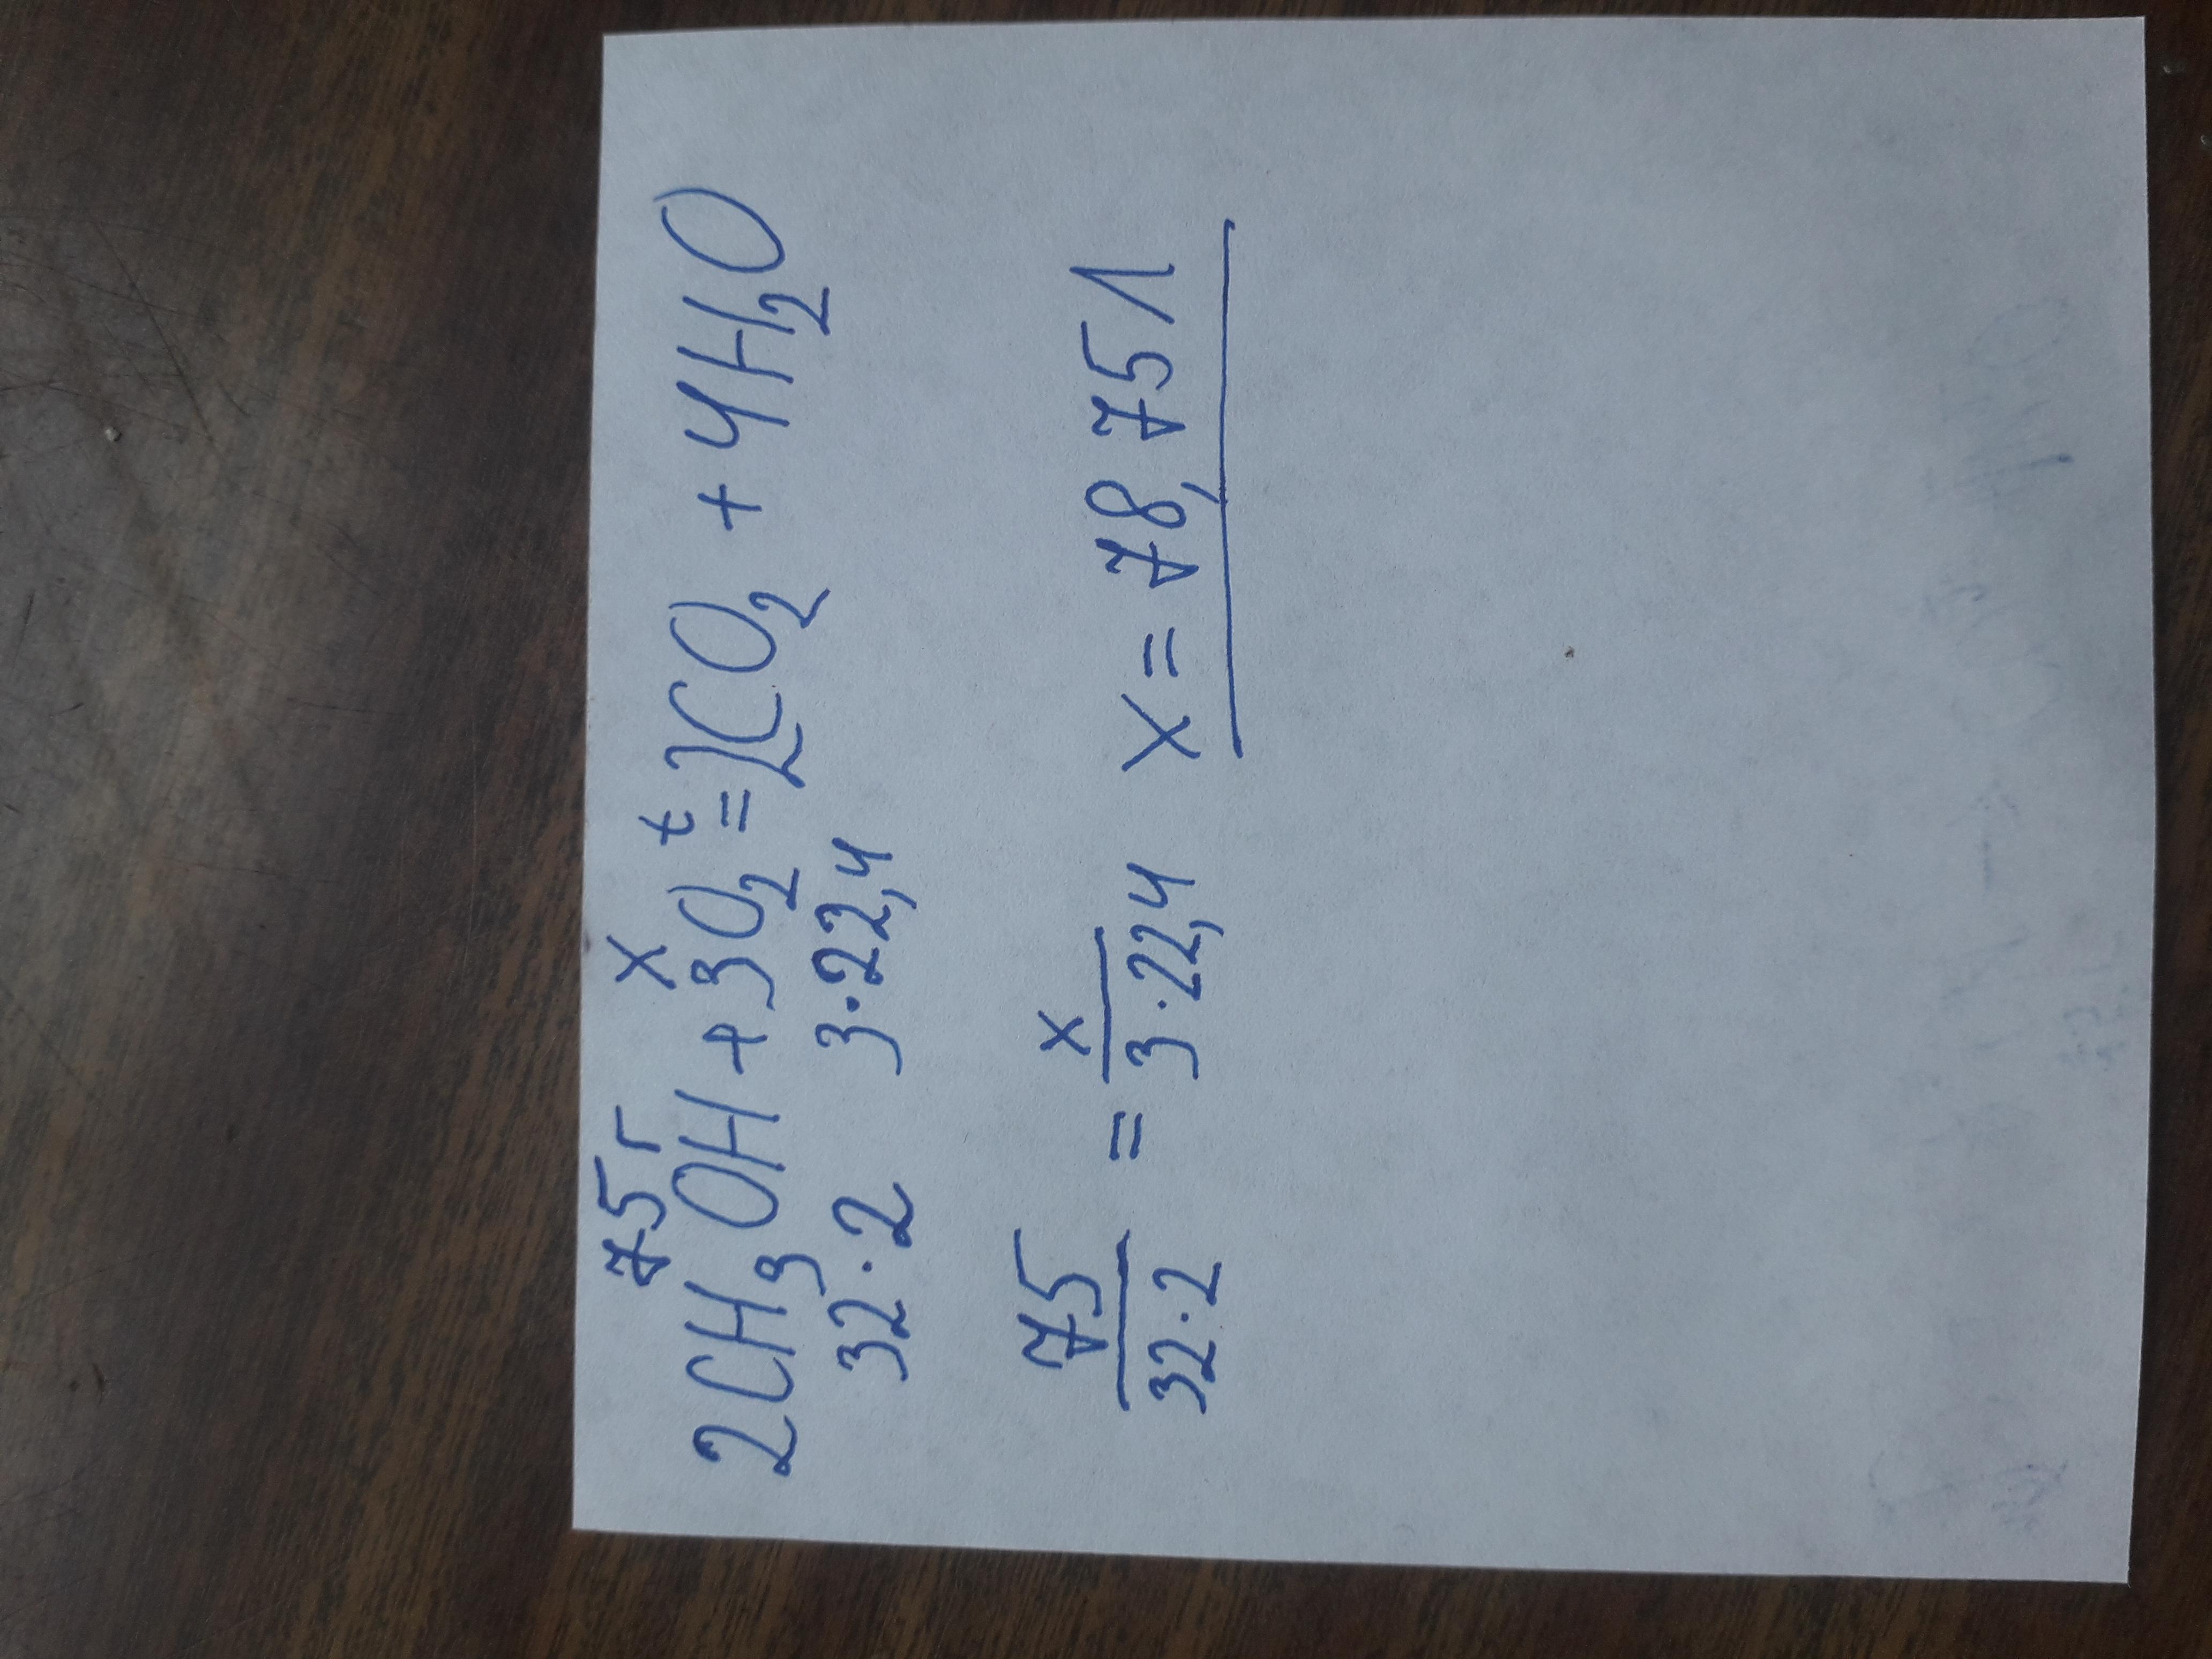 75г x
2CH3OH + 3O2 =t 2CO2 + 4H2O
32·2 3·22,4
75/32·2 = x/3·22,4 x = 78,75л